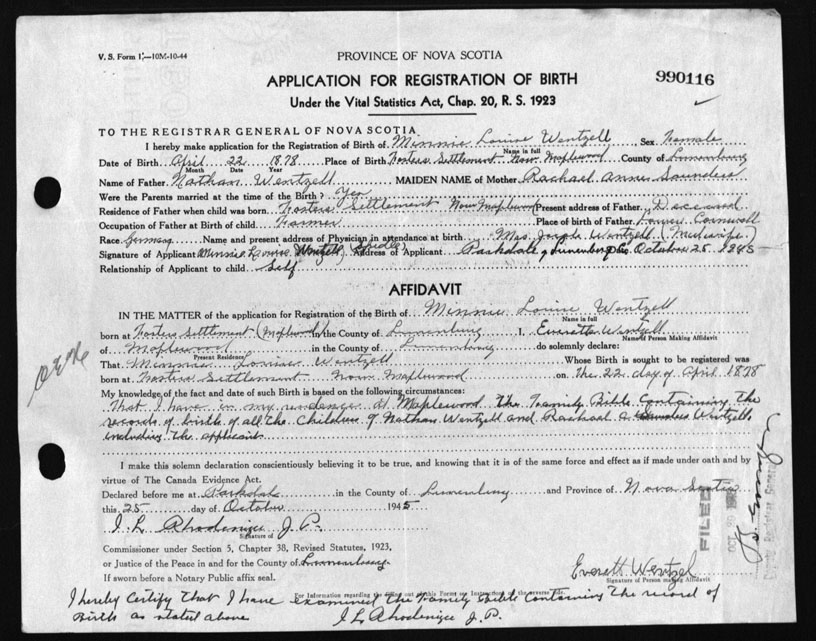 V. S. Form 1,—10M-10-44
PROVINCE OF NOVA SCOTIA
APPLICATION FOR REGISTRATION OF BIRTH
990116
Under the Vital Statistics Act, Chap. 20, R. S. 1923
TO THE REGISTRAR GENERAL OF NOVA SCOTIA
I hereby make application for the Registration of Birth of Minnie Louise Wentzell Sex Female
Name in full
Date of Birth April 22 1878 Place of Birth Fosters Settlement Now Maplewood County of Lunenburg
Month Date Year
Name of Father Nathan Wentzell MAIDEN NAME of Mother Rachael Anne Saunders
Were the Parents married at the time of the Birth? Yes
Residence of Father when child was born Fosters Settlement Now Maplewood Present address of Father Deceased
Occupation of Father at Birth of child Farmer Place of birth of Father Cornwall
Race German Name and present address of Physician in attendance at birth Mrs Joseph Wentzell (Midwife)
Signature of Applicant Minnie Louise Wentzell Address of Applicant Parkdale Lunenburg Co October 25 1945
Relationship of Applicant to child Self
AFFIDAVIT
IN THE MATTER of the application for Registration of the Birth of Minnie Louise Wentzell
Name in full
born at Fosters Settlement (Maplewood) in the County of Lunenburg I, Everette Wentzell
Name of Person Making Affidavit
of Maplewood in the County of Lunenburg do solemnly declare:
Present Residence
That Minnie Louise Wentzell Whose Birth is sought to be registered was
born at Fosters Settlement Now Maplewood on the 22 day of April 1878
My knowledge of the fact and date of such Birth is based on the following circumstances:
That I have in my residence at Maplewood the Family Bible Containing the
records of birth of all the Children of Nathan Wentzell and Rachael Wentzell
including the applicant
I make this solemn declaration conscientiously believing it to be true, and knowing that it is of the same force and effect as if made under oath and by
virtue of The Canada Evidence Act.
Declared before me at Parkdale in the County of Lunenburg and Province of Nova Scotia
this 25 day of October 1945
I. L. Rhodenizer J. P.
Signature of
Commissioner under Section 5, Chapter 38, Revised Statutes, 1923,
or Justice of the Peace in and for the County of Lunenburg
If sworn before a Notary Public affix seal.
Everett Wentzel
Signature of Person making Affidavit
For Information regarding the filling out of this Form see Instructions on the reverse side.
I hereby Certify that I have examined the Family Bible Containing the record of
Birth as stated above I L Rhodenizer J. P.
FILED